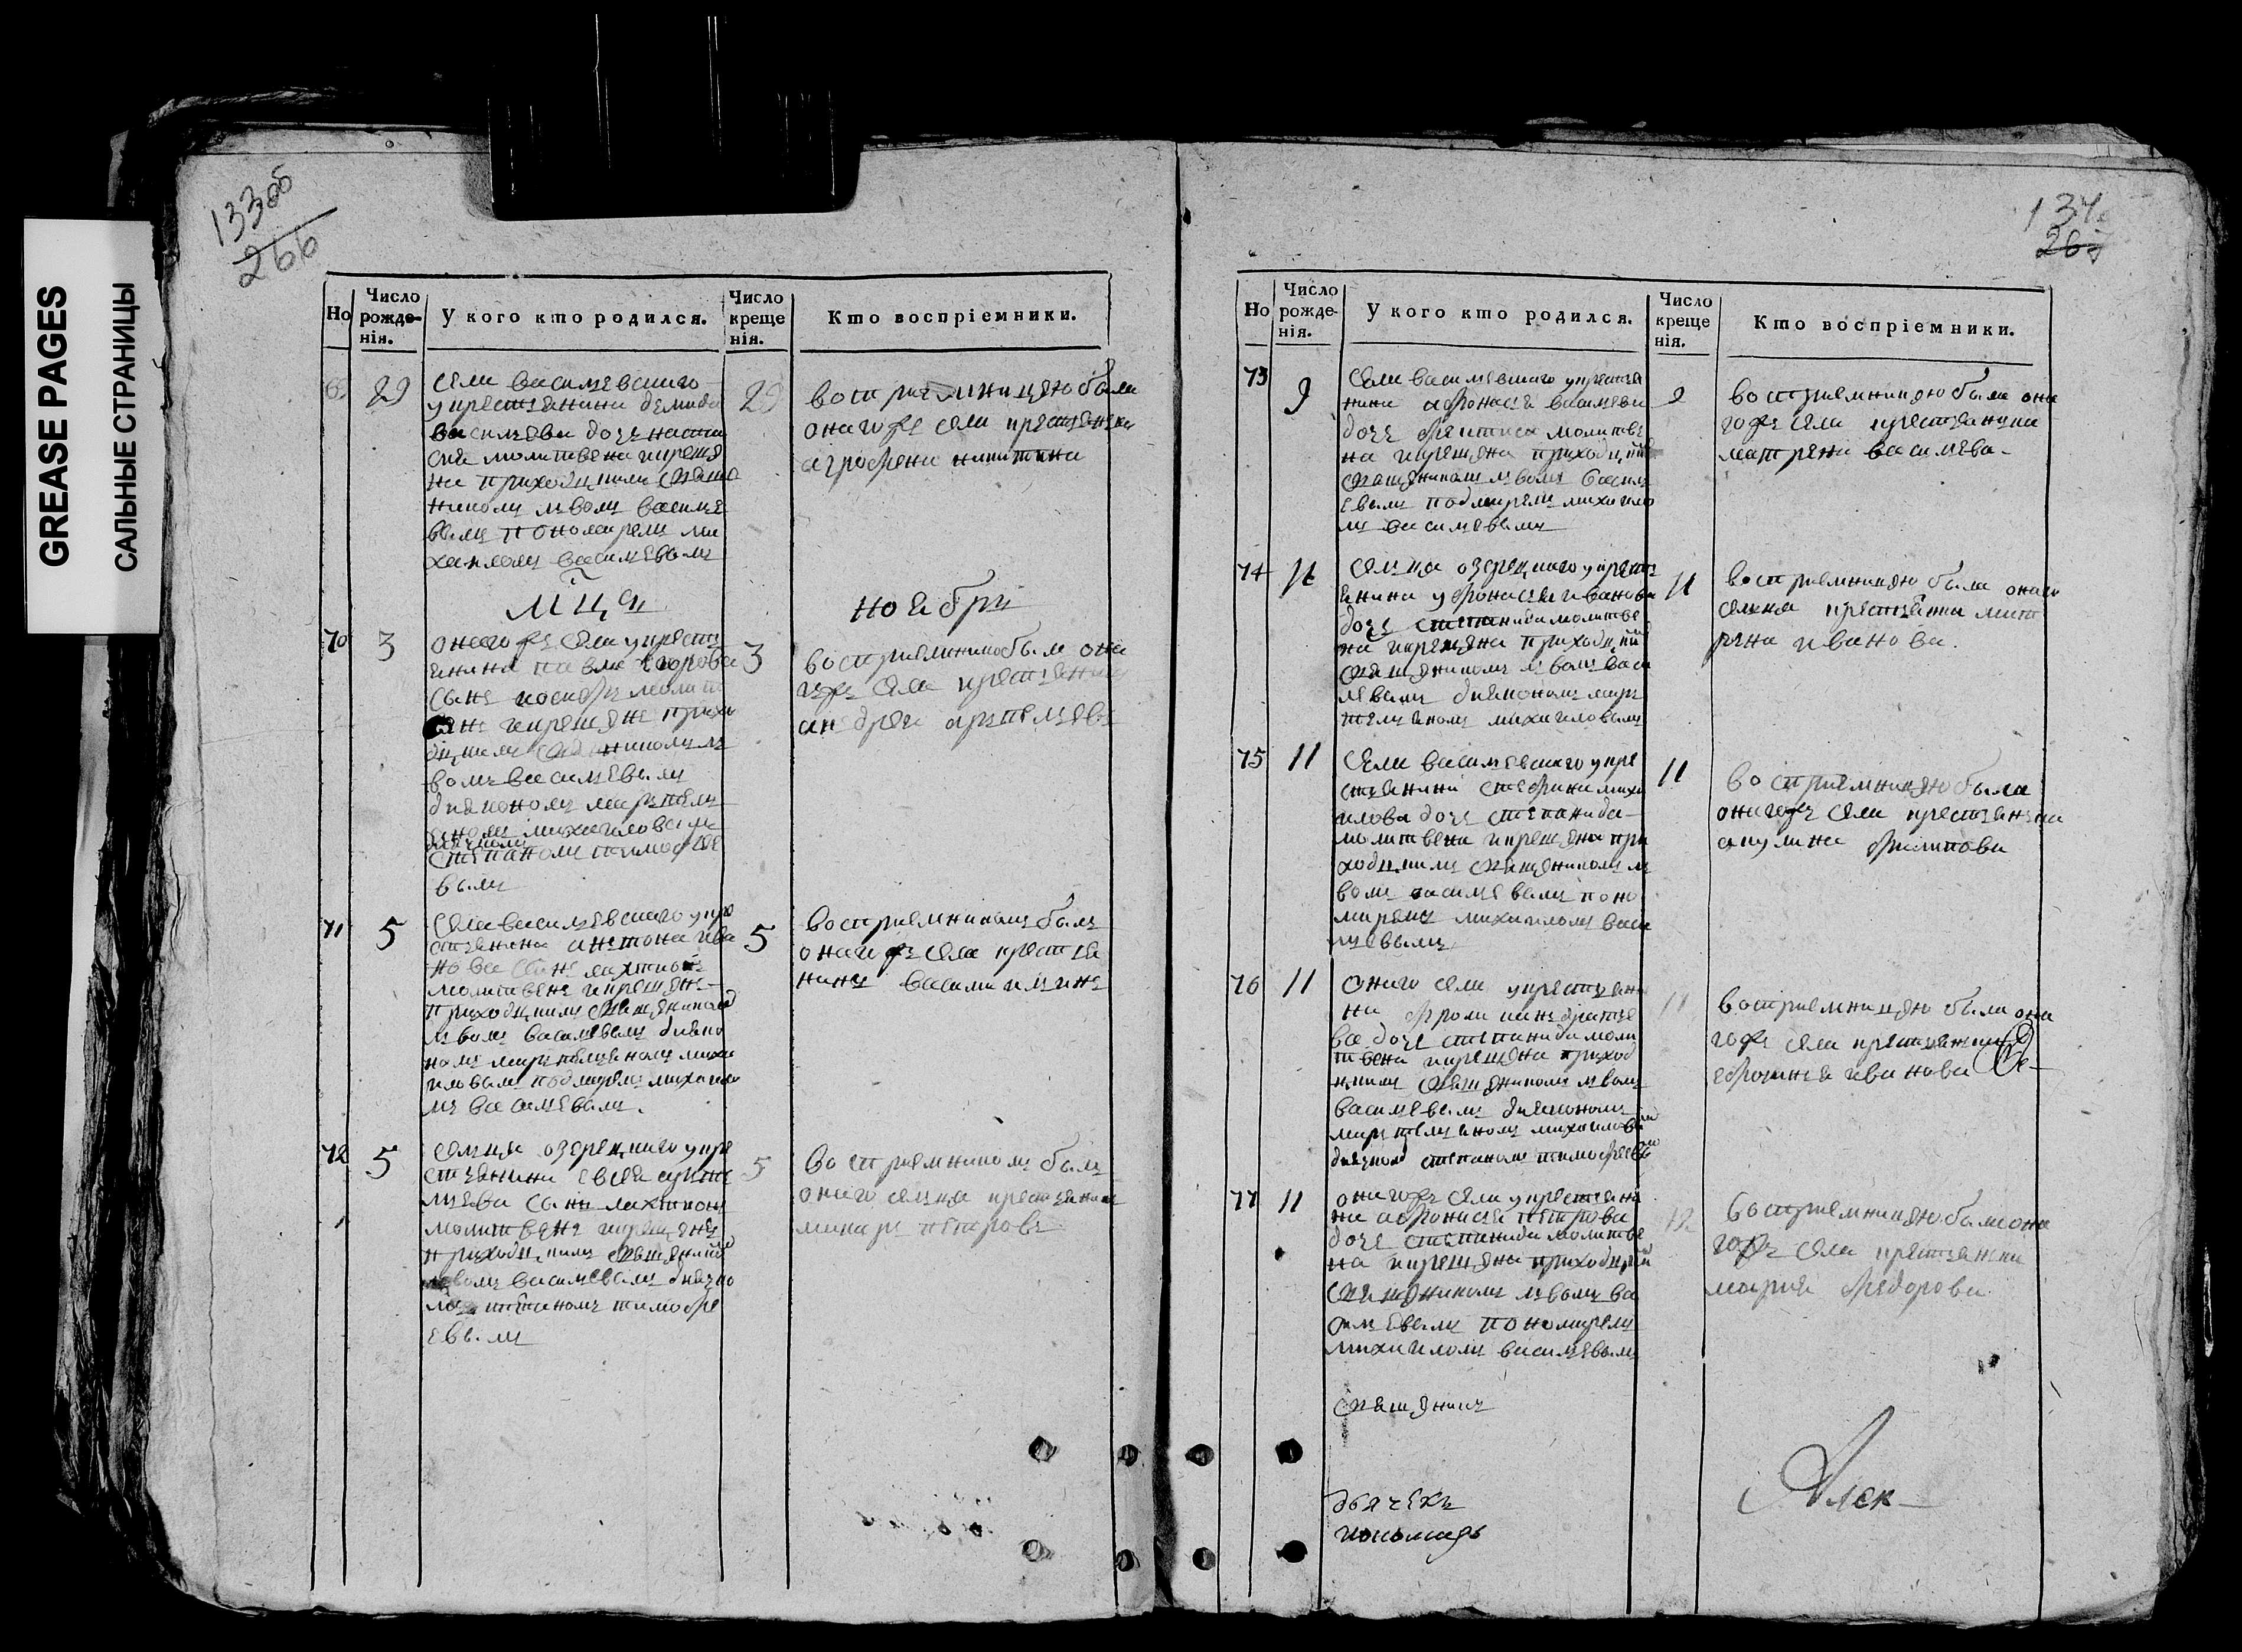 GREASE PAGES
САЛЬНЫЕ СТРАНИЦЫ
133об
266
Но
Число рожде-нія.
У кого кто родился.
Число креще нія.
Кто воспріемники.
29
села василевскаго
у крестьянина демида
василева дочь наста
сия молитвена и креще
на приходцкимъ свяще
никомъ лвомъ василе
вымъ пономаремъ ми
хаиломъ василевымъ
29
восприемницею была
онагожъ села крестьянка
агрофена никитина
мца ноября
70
3
онагожъ села у крест
янина павла егорова
сынъ иосифъ молит
венъ и крещенъ прихо
дцкимъ никомъ л
вомъ василевымъ
дияконом мартемь
яномъ михаиловым
дьячкомъ
степаномъ тимофее
вымъ
3
восприемникъ былъ она
гожъ села крестьянинъ
андреи артемьевъ
71
5
села василевскаго у кре
стьянина антона ива
нова сынъ
молитвенъ и крещенъ
приходцкимъ священиком
лвомъ василевымъ дияко
номъ мартемьяномъ миха
иловым подмаремъ михаило
мъ василевымъ.
5
восприемникомъ былъ
онагожъ села крестья
нинъ василий ильинъ
72
5
селца озерецкаго у кре
стьянина евсея арте
мьева сынъ
молитвенъ и крещенъ
приходцкимъ священником
лвомъ василевымъ дьячко
мъ степаномъ тимофе
евымъ
5
восприемникомъ былъ
онаго селца крестьянин
макаръ петровъ
134
267
Но
Число рожде-нія.
У кого кто родился.
Число креще нія.
Кто воспріемники.
73
9
села василевскаго у крестья
нина афонасья василева
дочь фетиса молитве
на и крещена приходцкимъ
священникомъ лвомъ васил
евымъ подмаремъ михаило
мъ василевымъ
9
восприемницею была она
гожъ села крестьянина
матрена василева
74
11
селца озерецкаго у крест
янина у афонасья иванова
дочь степанида молитве
на и крещена приходцкимъ
священикомъ лвомъ васи
левымъ дияконом мар
темьяномъ михаиловымъ
11
восприемницею была онаго
селца крестьянка мат
рена иванова.
75
11
села василевскаго у кре
стьянина стефана миха
илова дочь степанида
молитвена и крещена при
ходцкимъ священикомъ л
вомъ василевымъ поно
маремъ михаиломъ васи
левымъ
11
восприемницею была
онагожъ села крестьянка
акулина филипова
76
11
онаго села у крестьяни
на фрола кондратье
ва дочь степанида моли
твена и крещена приход
цкимъ священикомъ лвомъ
василевымъ дияконом
мартемьяномъ михаиловым
дьячком степаномъ тимофеевым
11
восприемницею была она
гожъ села крестьянка
ефросинья иванова
77
11
онагожъ села у крестьяни
на афонасья петрова
дочь степанида молитве
на и крещена приходцкимъ
священикомъ лвомъ ва
силевымъ пономаремъ
михаиломъ василевымъ
12
восприемницею была она
гожъ села крестьянка
мария федорова
священикъ
дьячекъ
пономарь
Алек-